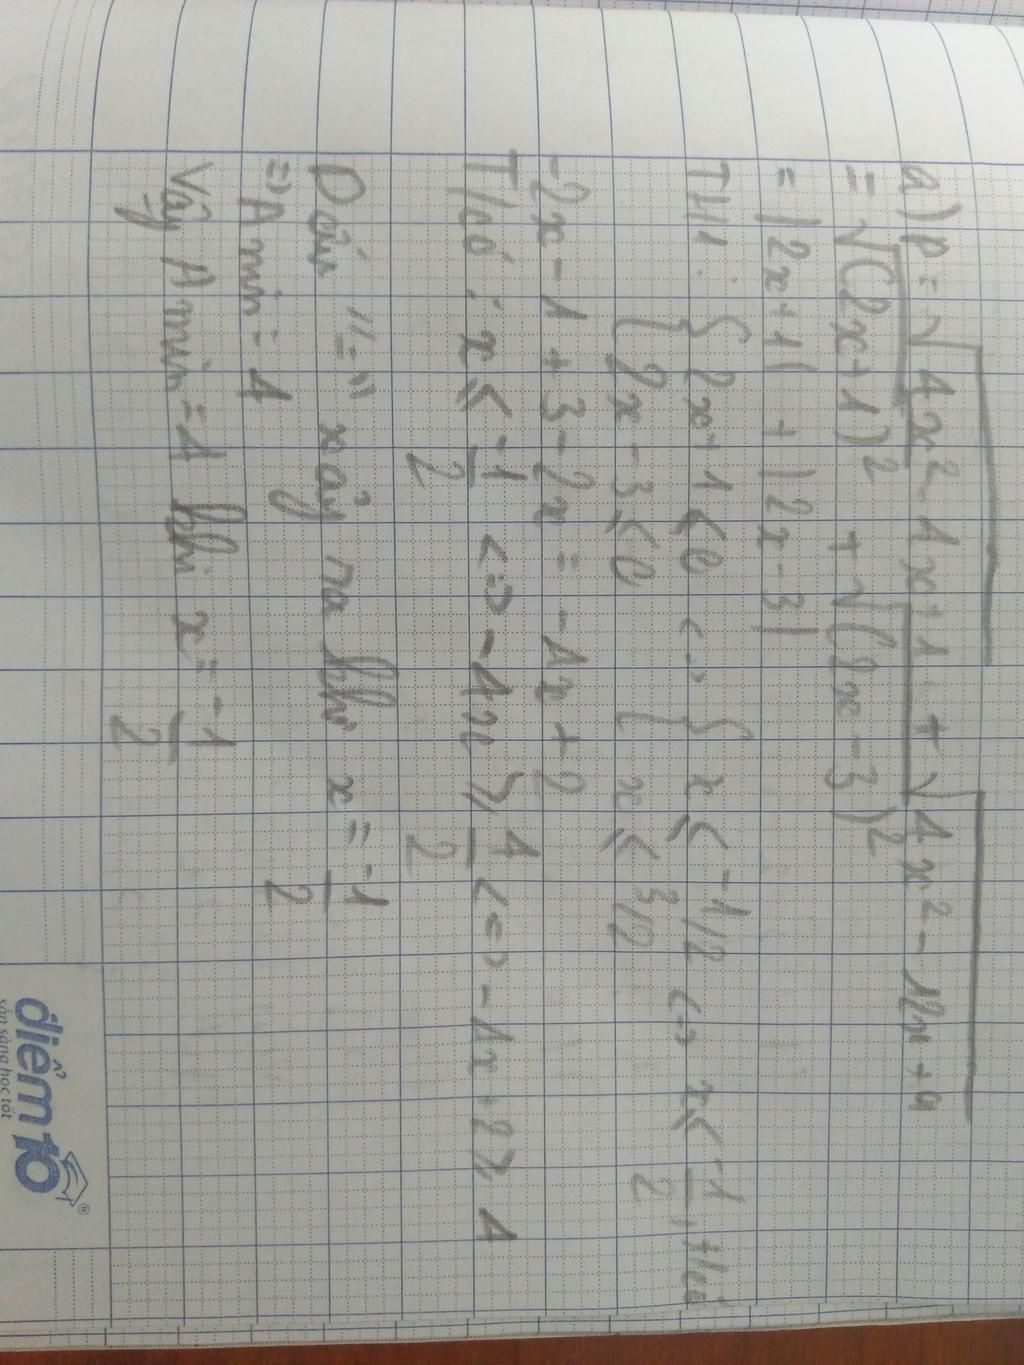 a) P = √4x² - 4x + 1 + √4x² - 12x + 9
= √(2x+1)² + √(2x-3)²
= |2x+1| + |2x-3|
TH1: { 2x+1 ≤ 0 <=> { x ≤ -1/2 <=> x ≤ -1/2, thì
{ 2x-3 ≤ 0 { x ≤ 3/2
-2x - 1 + 3 - 2x = -4x + 2
Ta có: x ≤ -1/2 <=> -4x ≥ 4/2 <=> -4x + 2 ≥ 4
Dấu "=" xảy ra khi x = -1/2
=> A min = 4
Vậy A min = 4 khi x = -1/2
điểm10
sẵn sàng học tốt